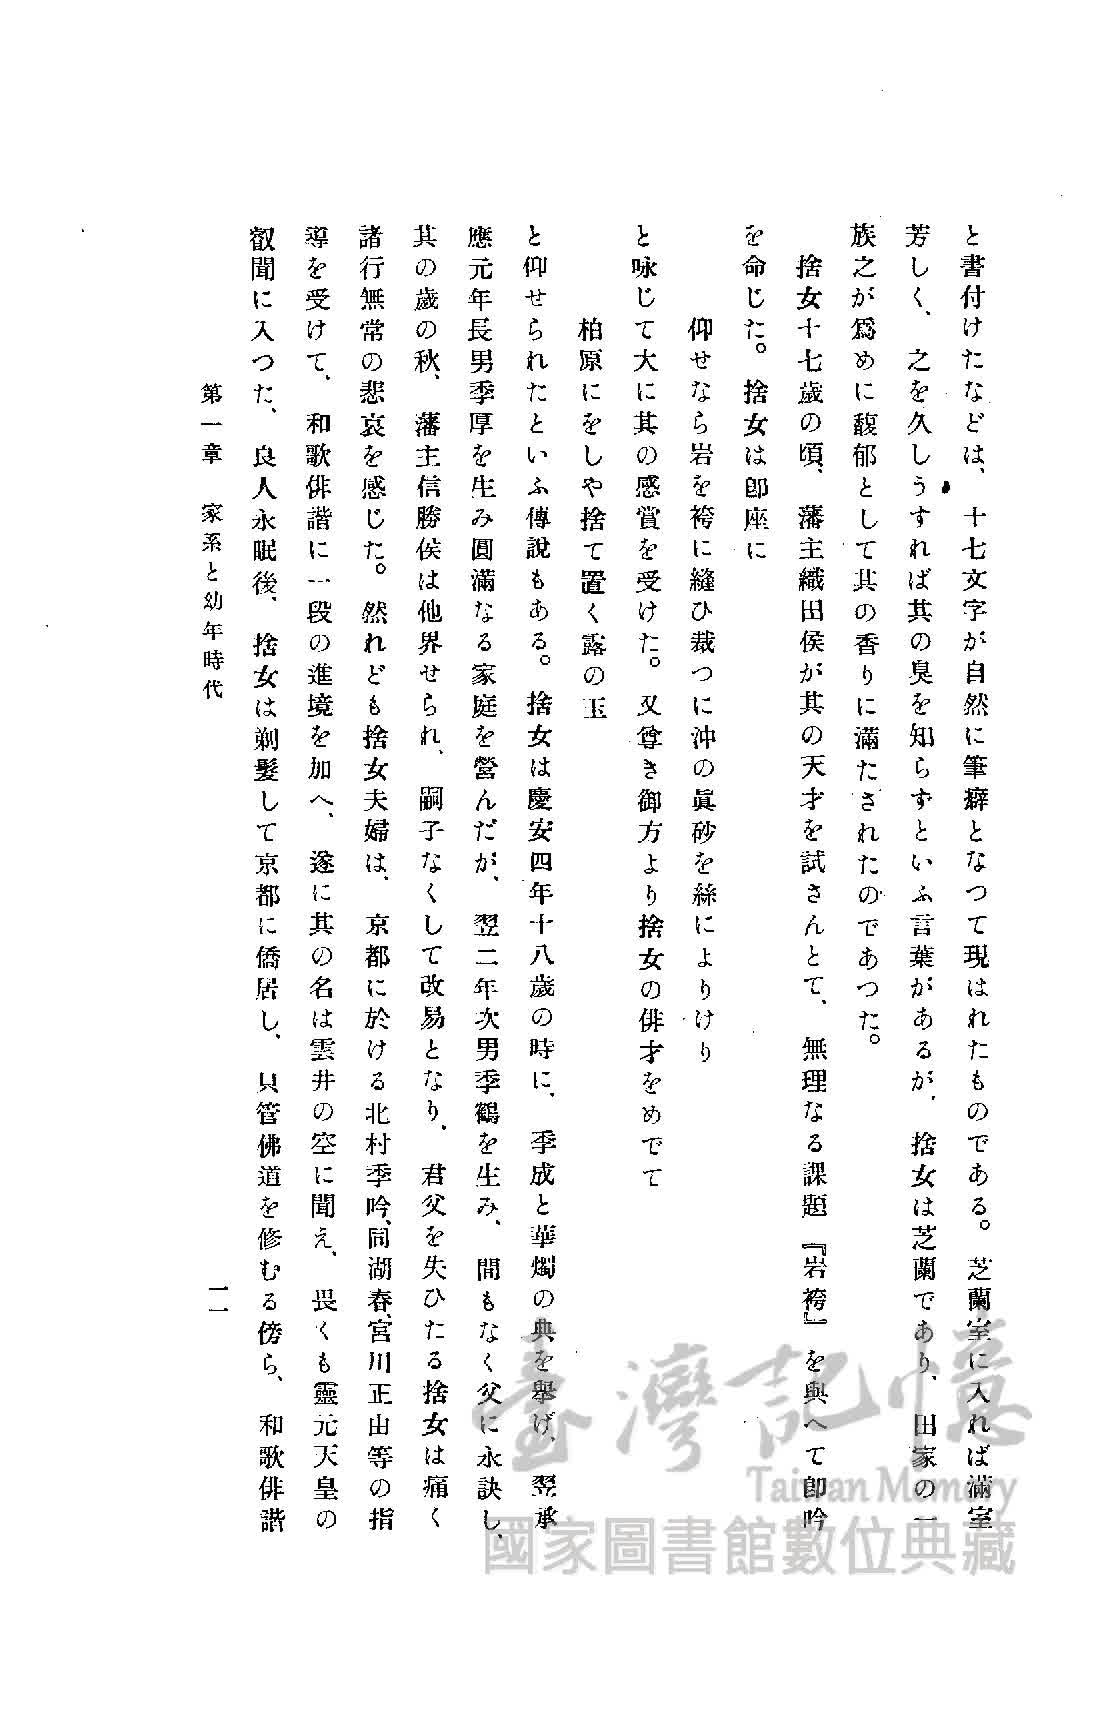 と書付けたなどは、十七文字が自然に筆癖となつて現はれたものである。芝蘭室に入れば滿室
芳しく、之を久しうすれば其の臭を知らずといふ言葉があるが、捨女は芝蘭であり、田家の一
族之が爲めに馥郁として其の香りに滿たされたのであつた。
捨女十七歲の頃、藩主織田侯が其の天才を試さんとて、無理なる課題『岩袴』を與へて卽吟
を命じた。捨女は卽座に
仰せなら岩を袴に縫ひ裁つに沖の眞砂を絲によりけり
と咏じて大に其の感賞を受けた。又尊き御方より捨女の俳才をめでて
柏原にをしや捨て置く露の玉
と仰せられたといふ傳說もある。捨女は慶安四年十八歲の時に、季成と華燭の典を舉げ、翌承
應元年長男季厚を生み圓滿なる家庭を營んだが、翌二年次男季鶴を生み、間もなく父に永訣し、
其の歲の秋、藩主信勝侯は他界せられ、嗣子なくして改易となり、君父を失ひたる捨女は痛く
諸行無常の悲哀を感じた。然れども捨女夫婦は、京都に於ける北村季吟、同湖春、宮川正由等の指
導を受けて、和歌俳諧に一段の進境を加へ、遂に其の名は雲井の空に聞え、畏くも靈元天皇の
叡聞に入つた、良人永眠後、捨女は剃髮して京都に僑居し、只管佛道を修むる傍ら、和歌俳諧
第一章 家系と幼年時代
一一
臺灣記憶
Taiwan Memory
國家圖書館數位典藏